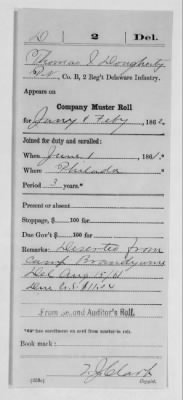 D 2 Del.
Thomas J Dougherty
Pvt, Co. B, 2 Reg't Delaware Infantry.
Appears on
Company Muster Roll
for Jany & Feby, 1862
Joined for duty and enrolled:
When June 1, 1861.
Where Philada
Period 3 years.*
Present or absent
Stoppage, $ 100 for
Due Gov't $ 100 for
Remarks: Deserted from
Camp Brandywine
Del Aug 15/61
Due U.S. $11.14
From and Auditor's Roll.
*See enrollment on card from muster-in roll.
Book mark:
T. J. Clark
(358c) Copyist.